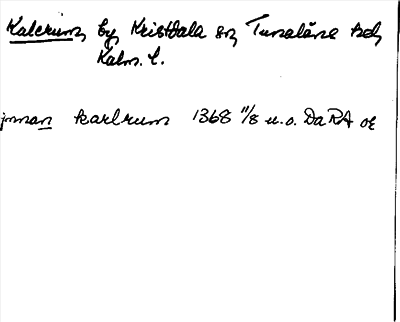 Kalerum, by Kristdala sn, Tunaläns hd,
Kalm. l.
jnnan karlrum 1368 11/8 u.o. DaRA or